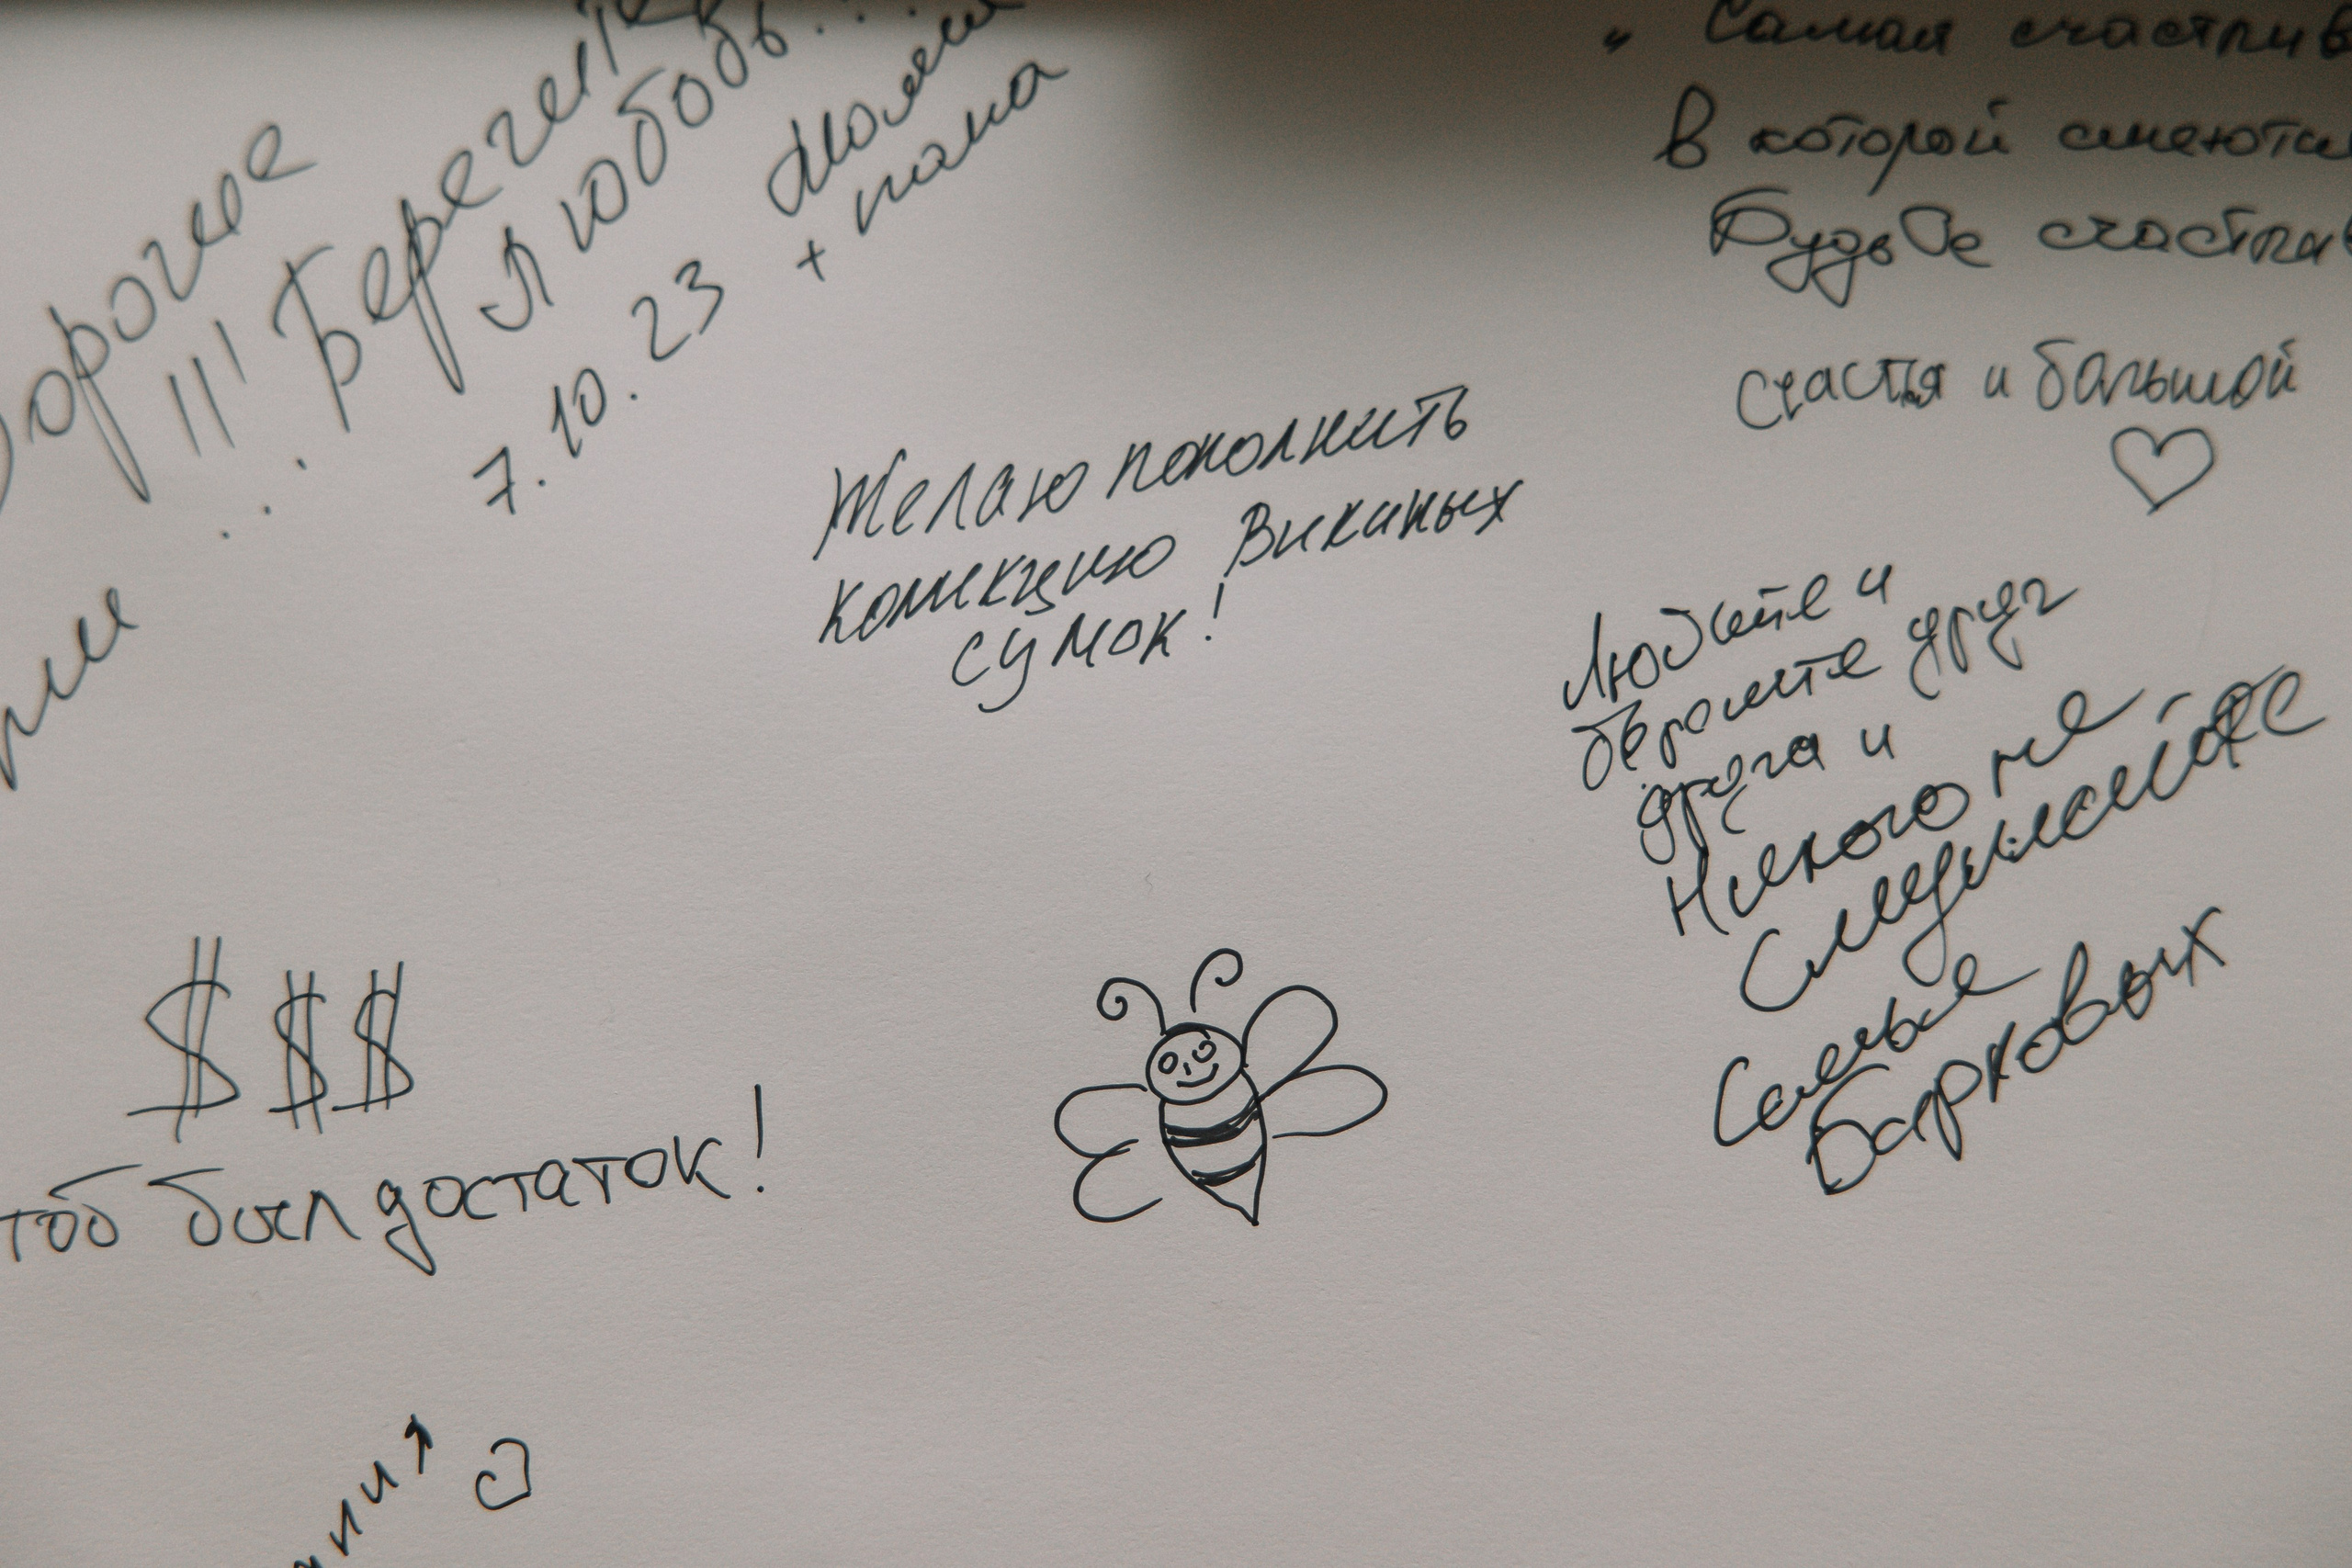 Дорогие
!!! Берегите
Любовь...
7.10.23 Мама
+ папа
" Самая счастлив
в которой смеются
Будьте счастлив
Счастья и большой
Желаю пополнить
колекцию Викиных
сумок!
Любите и
берегите друг
друга и
Никого не
Слушайте
Семья
Барковых
$ $ $
тоб был достаток!
ания